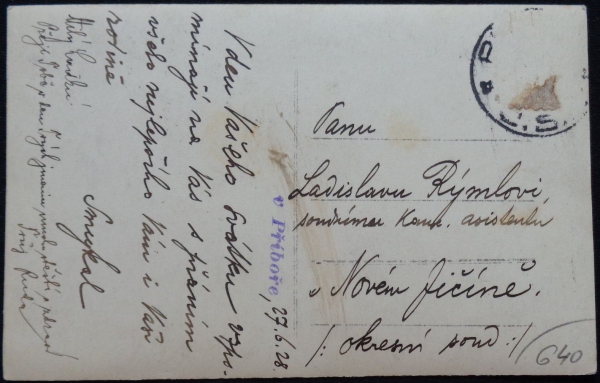 V den Vašeho svátku vzpo-
mínají na Vás s přáním
všeho nejlepšího Vám i Vaší
rodině
Smykal
v Příboře, 27.6.28.
Panu
Ladislavu Rýmlovi,
soudnímu kanc. asistentu
v Novém Jičíně.
/: okresní soud :/
640
Milý
Přeji Tobě k den Tvých jmenin mnoho štěstí a zdraví
Tvůj